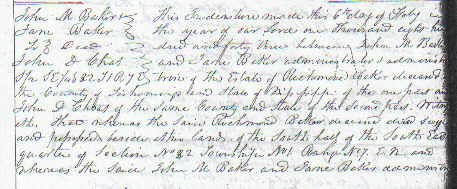 John M Baker & This Indenture made this 6th day of Feby in
Jane Baker the year of our Lord one Thousand eight hun
To Deed dred and forty three between John M Baker
John I Chas and Jane Baker administrator & administra
S½ SE¼ S32 T1 R7E trix of the Estate of Richmond Baker deceased
the County of Tishomingo and State of Mississippi of the one part and
John I Chas of the Same County and State of the Second part, Witness
eth. That whereas the Said Richmond Baker, deceased died Seized
and possessed besides other lands of the South half of the South East
quarter of Section No 32 Township No 1 Range No 7. E. N. and
whereas the Said John M Baker and Jane Baker administra